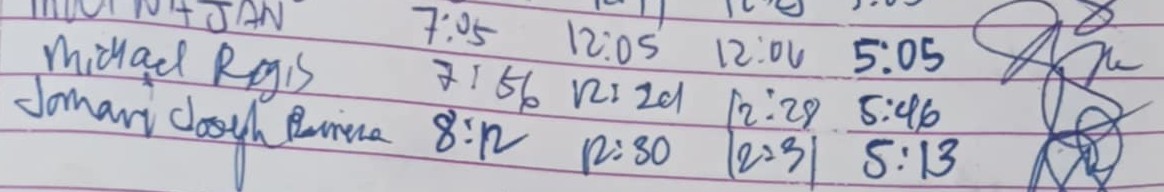 JAN 7:05 12:05 12:06 5:05
Michael Regis 7:56 12:28 12:29 5:46
Jomari Joseph 8:12 12:30 12:31 5:13